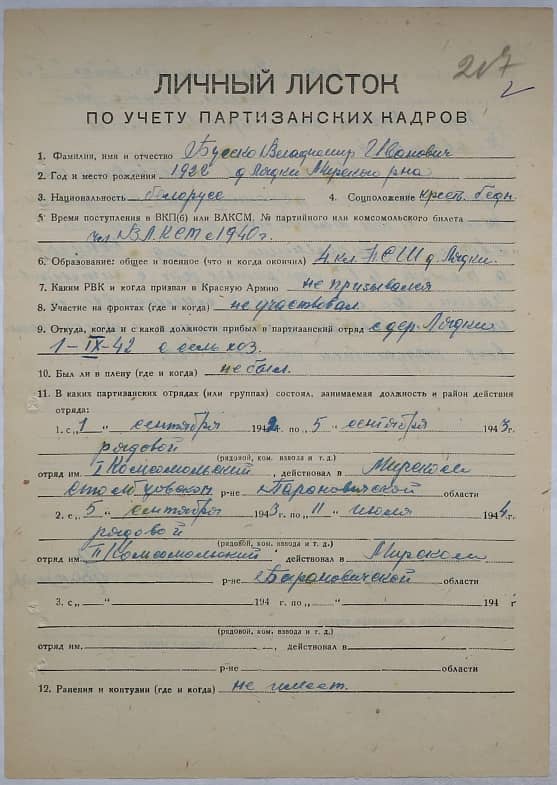 217
ЛИЧНЫЙ ЛИСТОК
ПО УЧЕТУ ПАРТИЗАНСКИХ КАДРОВ
1. Фамилия, имя и отчество Бусско Владимир Иванович
2. Год и место рождения 1922 д Лядки Мирского р-на
3. Национальность белорусс 4. Соцположение крест. бедн
5. Время поступления в ВКП(б) или ВЛКСМ, № партийного или комсомольского билета
чл ВЛКСМ с 1940 г.
6. Образование: общее и военное (что и когда окончил) 4 кл. НСШ д. Лядки.
7. Каким РВК и когда призван в Красную Армию не призывался
8. Участие на фронтах (где и когда) не участвовал
9. Откуда, когда и с какой должности прибыл в партизанский отряд с дер. Лядки
1-IX-42 с сель хоз.
10. Был ли в плену (где и когда) не был.
11. В каких партизанских отрядах (или группах) состоял, занимаемая должность и район действия
отряда:
1. с „1" сентября 1942 г. по „5" сентября 1943 г.
рядовой
(рядовой, ком. взвода и т. д.)
отряд им. I Комсомольский, действовал в Мирском
р-не Барановичской области
2. с „5" сентября 1943 г. по „11" июля 1944 г.
рядовой
(рядовой, ком. взвода и т. д.)
отряд им. II Комсомольский действовал в Мирском
р-не Барановичской области
3. с „ " 194 г. по „ " 194 г
(рядовой, ком. взвода и т. д.)
отряд им. , действовал в
р-не области
12. Ранения и контузии (где и когда) не имеет.